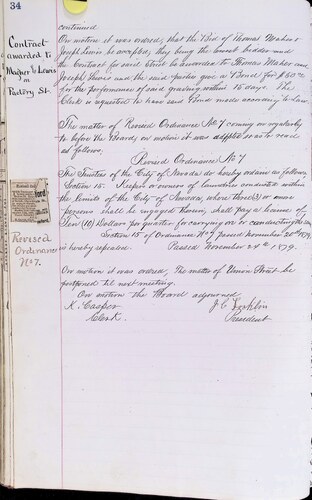 34
continued
On motion it was ordered, that the Bid of Thomas Maher &
Joseph Lewis be accepted, they being the lowest bidder and
the Contract for said Street be awarded to Thomas Maher and
Joseph Lewis and the said parties give a Bond for $600
for the performance of said grading within 15 days. The
Clerk is requested to have said Bond made according to Law.
Contract
awarded to
Maher & Lewis
on
Factory St.
The matter of Revised Ordinance No 7 coming up regularly
to before the Board, on motion it was adopted so as to read
as follows.
Revised Ordinance No 7
The Trustees of the City of Nevada do hereby ordain as follows
Section 15. Keepers or owners of laundries conducted within
the limits of the City of Nevada, where three (3) or more
persons shall be engaged therein, shall pay a license of
Ten (10) Dollars per quarter for carrying on or conducting the same
Section 15 of Ordinance No 7 passed November 20th 1879,
is hereby repealed. Passed November 24th 1879.
Revised
Ordinance
No 7.
On motion it was ordered, The matter of Union Street be
postponed til next meeting.
On motion the Board adjourned
K. Casper
Clerk
J C
President